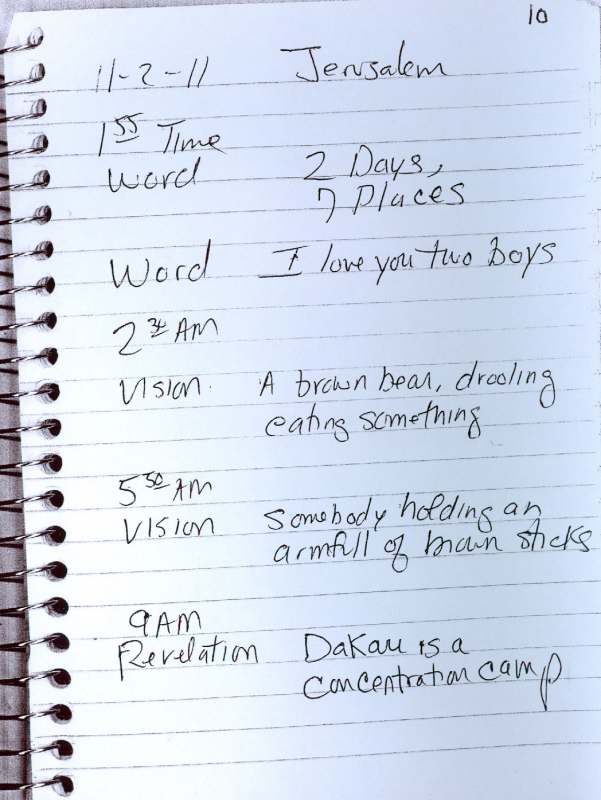 10
11-2-11 Jerusalem
1st Time
Word 2 Days,
7 Places
Word I love you two boys
2 AM
Vision. A brown bear, drooling
eating something
5 50 AM
Vision Somebody holding an
armfull of brown sticks
9AM
Revelation DaKau is a
concentration camp